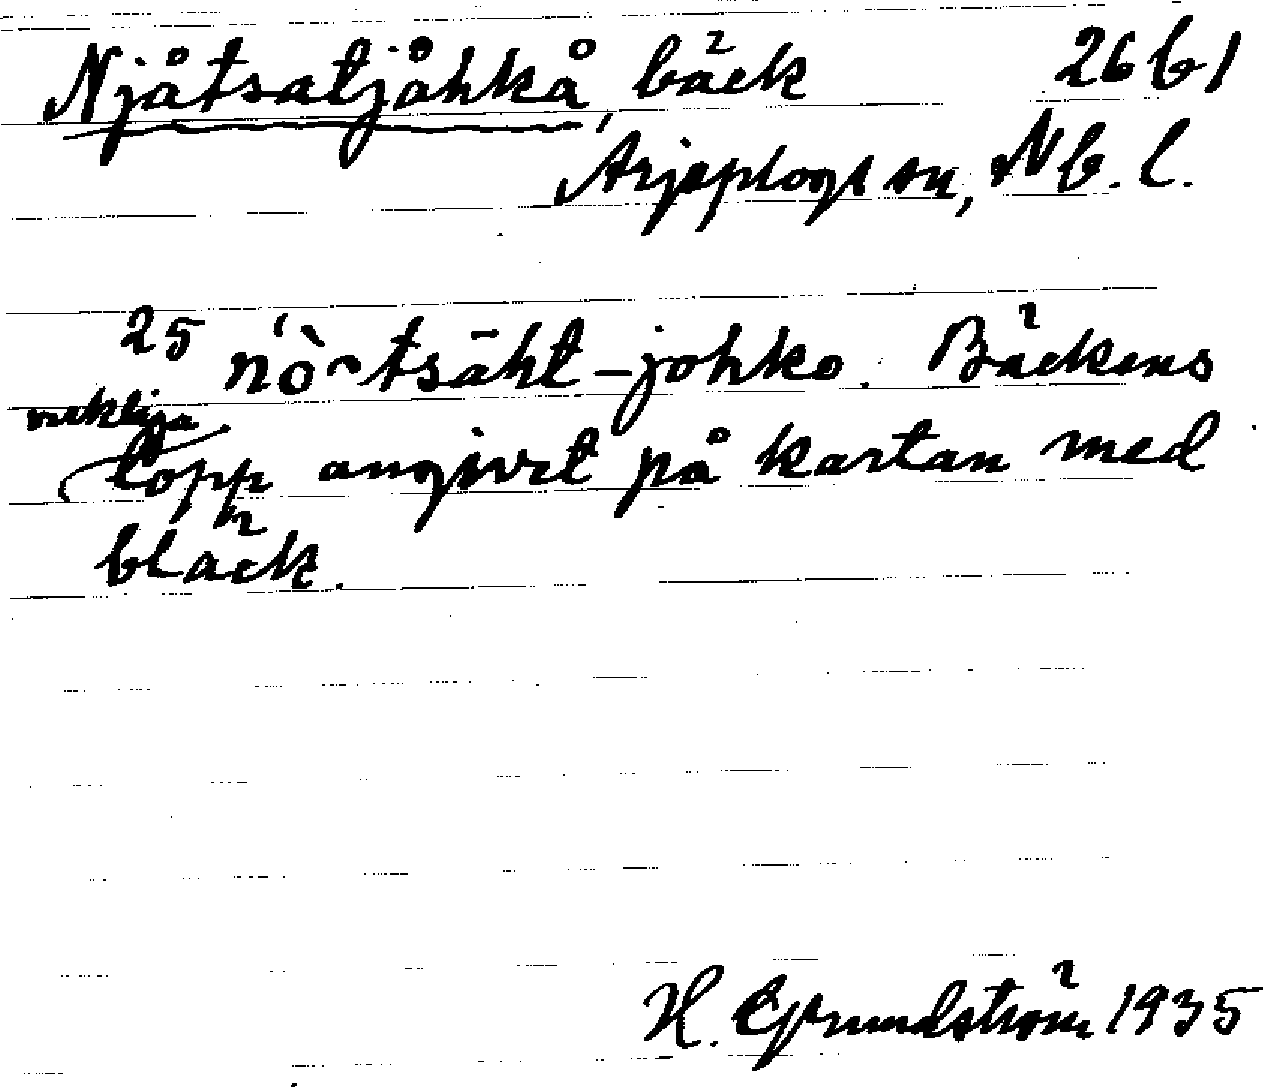 Njåtsatjåhkå bäck 26 b 1
Arjeplogs sn, Nb. l.
25 ńò̄tsāht-johko. Bäckens
verkliga
lopp angivet på kartan med
bläck.
H. Grundström 1935